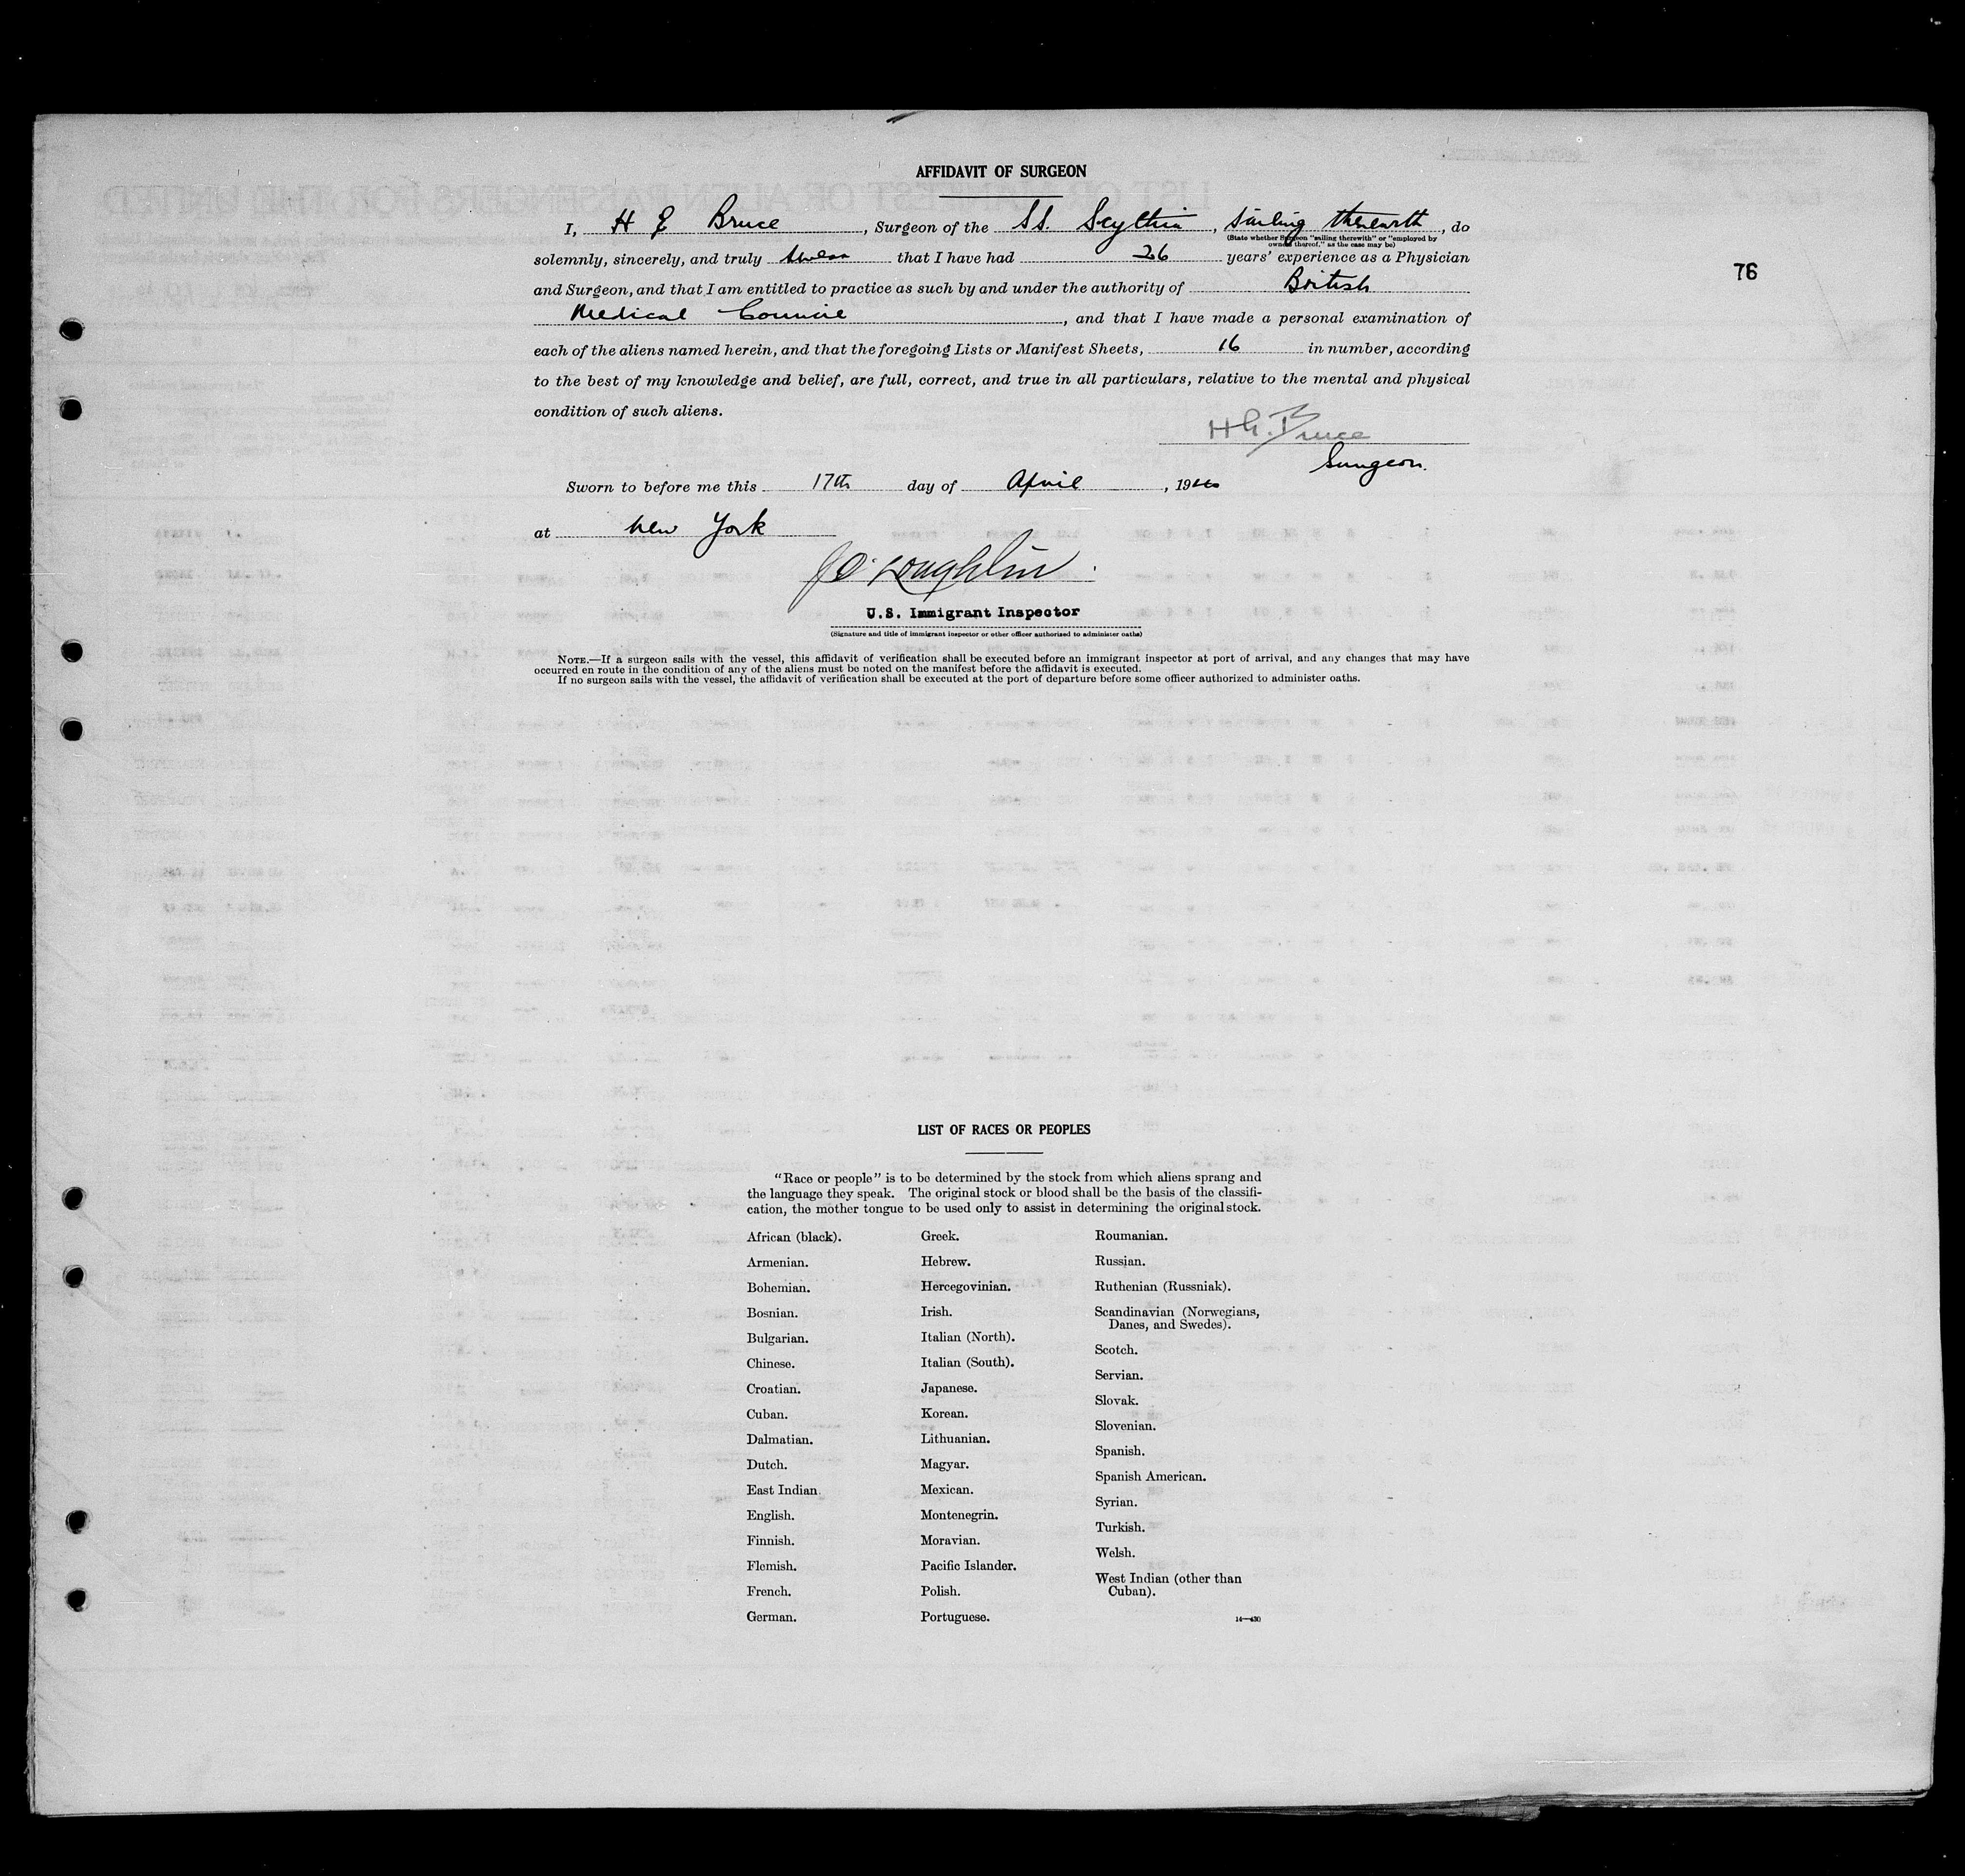 AFFIDAVIT OF SURGEON
I, H G Bruce, Surgeon of the SS. Scythia, Sailing therewith, do
(State whether Surgeon "sailing therewith" or "employed by
owners thereof," as the case may be)
solemnly, sincerely, and truly swear that I have had 26 years' experience as a Physician
76
and Surgeon, and that I am entitled to practice as such by and under the authority of British
Medical Council, and that I have made a personal examination of
each of the aliens named herein, and that the foregoing Lists or Manifest Sheets, 16 in number, according
to the best of my knowledge and belief, are full, correct, and true in all particulars, relative to the mental and physical
condition of such aliens.
H G. Bruce
Surgeon.
Sworn to before me this 17th day of April, 19
at New York
J O'Loughlin.
U.S. Immigrant Inspector
(Signature and title of immigrant inspector or other officer authorized to administer oaths)
NOTE.—If a surgeon sails with the vessel, this affidavit of verification shall be executed before an immigrant inspector at port of arrival, and any changes that may have
occurred en route in the condition of any of the aliens must be noted on the manifest before the affidavit is executed.
If no surgeon sails with the vessel, the affidavit of verification shall be executed at the port of departure before some officer authorized to administer oaths.
LIST OF RACES OR PEOPLES
"Race or people" is to be determined by the stock from which aliens sprang and
the language they speak. The original stock or blood shall be the basis of the classifi-
cation, the mother tongue to be used only to assist in determining the original stock.
African (black).
Armenian.
Bohemian.
Bosnian.
Bulgarian.
Chinese.
Croatian.
Cuban.
Dalmatian.
Dutch.
East Indian.
English.
Finnish.
Flemish.
French.
German.
Greek.
Hebrew.
Hercegovinian.
Irish.
Italian (North).
Italian (South).
Japanese.
Korean.
Lithuanian.
Magyar.
Mexican.
Montenegrin.
Moravian.
Pacific Islander.
Polish.
Portuguese.
Roumanian.
Russian.
Ruthenian (Russniak).
Scandinavian (Norwegians,
Danes, and Swedes).
Scotch.
Servian.
Slovak.
Slovenian.
Spanish.
Spanish American.
Syrian.
Turkish.
Welsh.
West Indian (other than
Cuban).
14—430